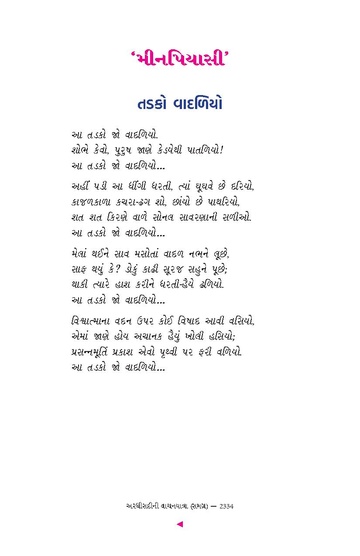 ‘મીનપિયાસી’
તડકો વાદળિયો
આ તડકો જો વાદળિયો.
શોભે કેવો, પુરુષ જાણે કેડયેથી પાતળિયો!
આ તડકો જો વાદળિયો…
અહીં પડી આ ધીંગી ધરતી, ત્યાં ઘૂઘવે છે દરિયો,
કાજળકાળા કચરા-ઢગ શો, છાંયો છે પાથરિયો,
શત શત કિરણે વાળે સોનલ સાવરણાની સળીઓ.
આ તડકો જો વાદળિયો…
મેલાં થઈને સાવ મસોતાં વાદળ નભને લૂછે,
સાફ થયું કે? ડોકું કાઢી સૂરજ સહુને પૂછે;
થાકી ત્યારે હાશ કરીને ધરતી-હૈયે ઢળિયો.
આ તડકો જો વાદળિયો…
વિશ્વાત્માના વદન ઉપર કોઈ વિષાદ આવી વસિયો,
એમાં જાણે હોય અચાનક હૈયું ખોલી હસિયો;
પ્રસન્નમૂર્તિ પ્રકાશ એવો પૃથ્વી પર ફરી વળિયો.
આ તડકો જો વાદળિયો…
અરધીસદીની વાચનયાત્રા (સમગ્ર) — 2334